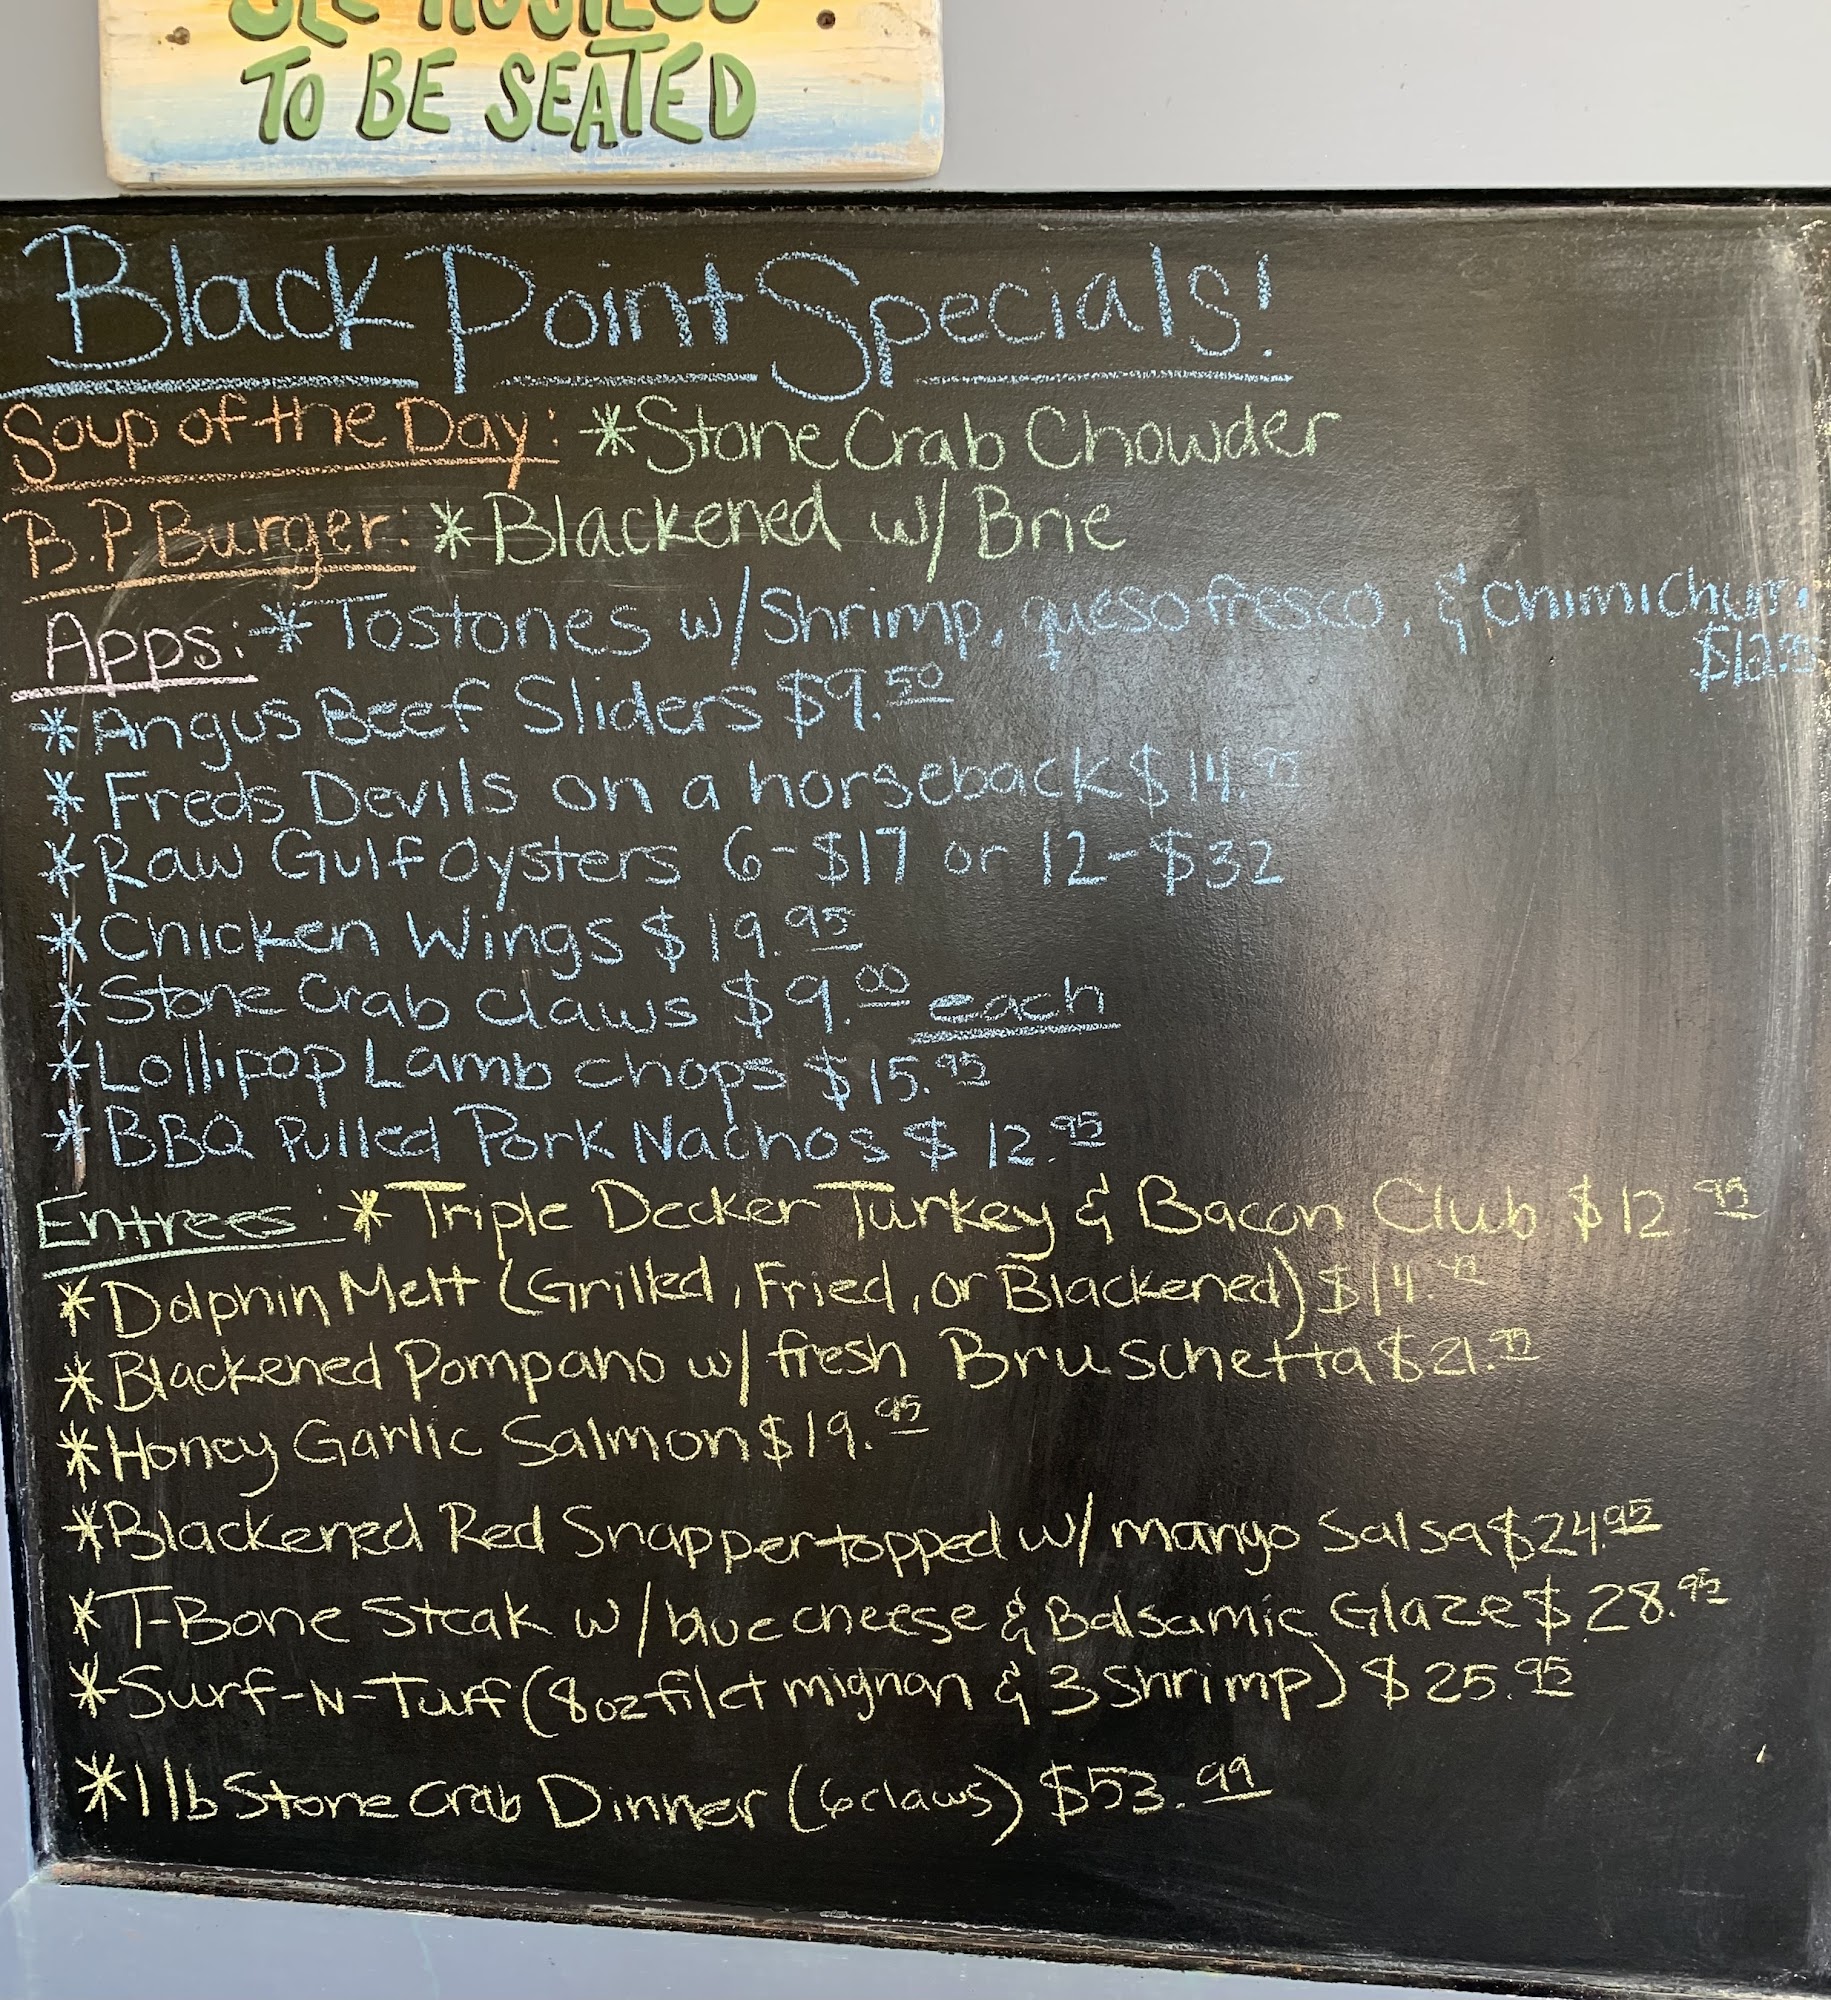 SEE HOSTESS
TO BE SEATED
Black Point Specials!
Soup of the Day: *Stone Crab Chowder
B.P. Burger: *Blackened w/ Brie
Apps: *Tostones w/ Shrimp, queso fresco, & chimichurri
$12.95
*Angus Beef Sliders $9.50
*Freds Devils on a horseback $14.95
*Raw Gulf Oysters 6-$17 or 12-$32
*Chicken Wings $19.95
*Stone Crab Claws $9.00 each
*Lollipop Lamb chops $15.95
*BBQ Pulled Pork Nachos $12.95
Entrees: *Triple Decker Turkey & Bacon Club $12.95
*Dolphin Melt (Grilled, Fried, or Blackened) $14.
*Blackened Pompano w/ fresh Bruschetta $21.95
*Honey Garlic Salmon $19.95
*Blackened Red Snapper topped w/ mango Salsa $24.95
*T-Bone Steak w/ blue cheese & Balsamic Glaze $28.95
*Surf-N-Turf (8oz filet mignon & 3 Shrimp) $25.95
*1 lb Stone Crab Dinner (6 claws) $53.99